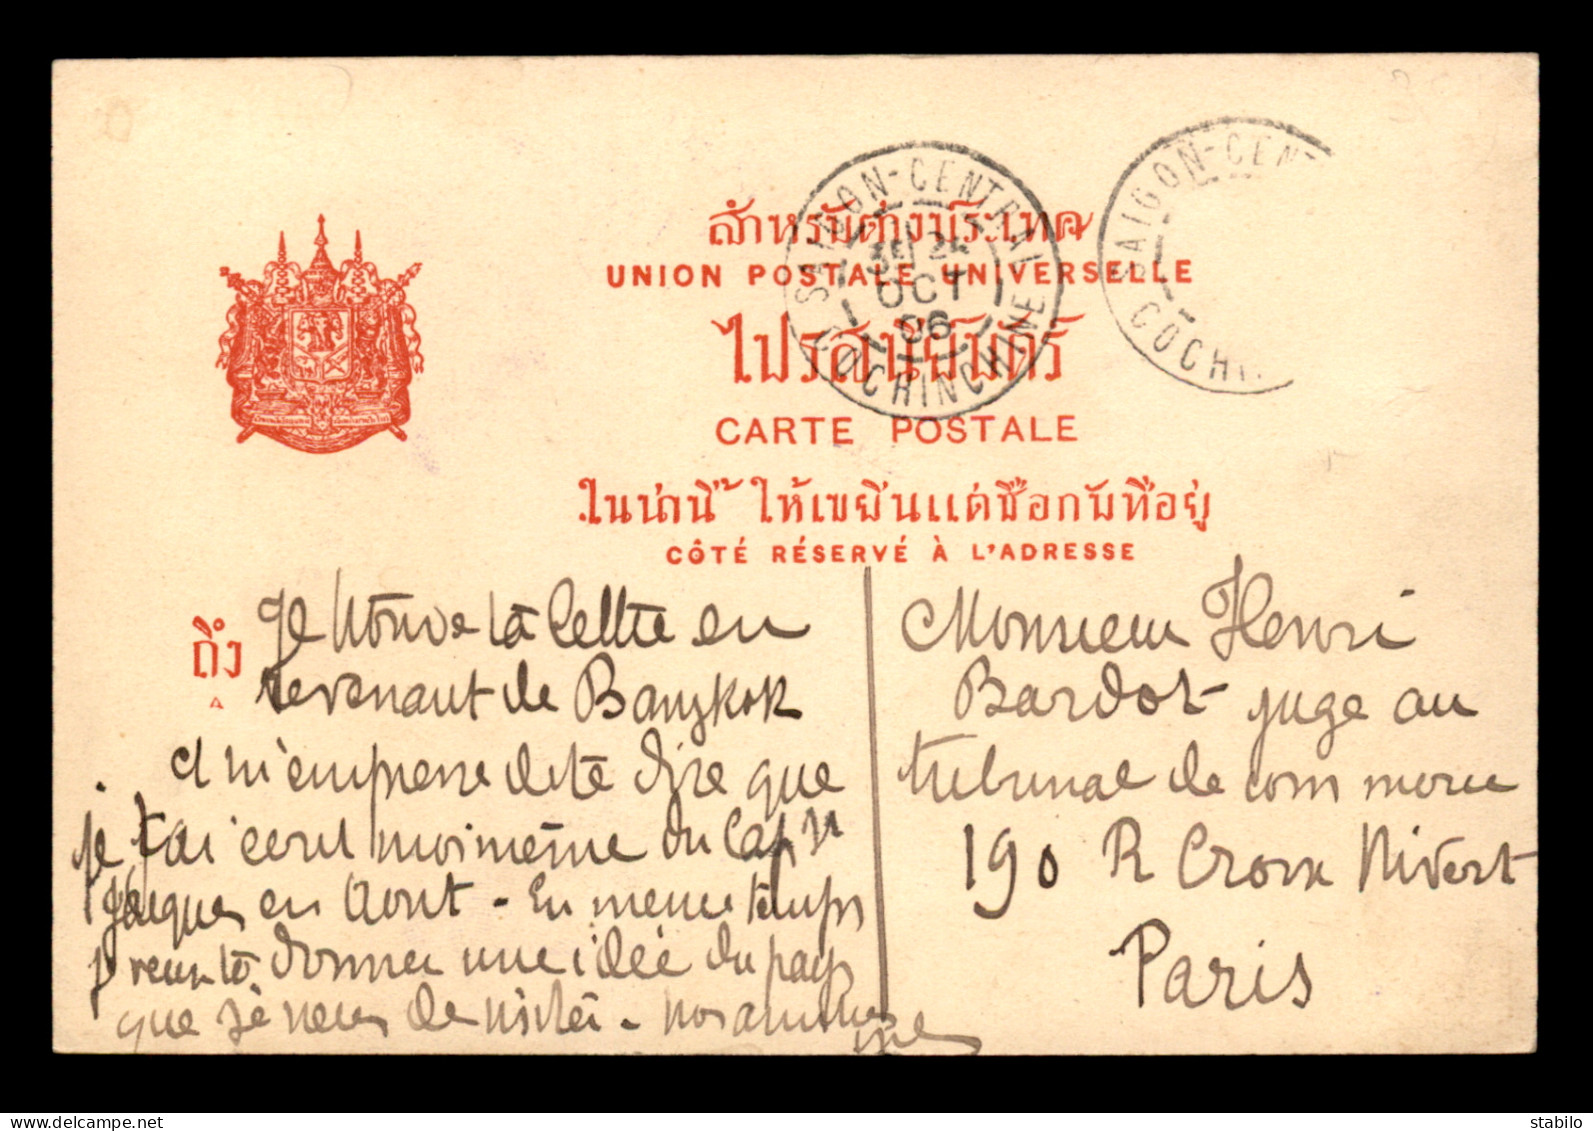 สำหรับต่างประเทศ
UNION POSTALE UNIVERSELLE
ไปรสนียบัตร์
CARTE POSTALE
ในน่านี้ ให้เขยีนแต่ชื่อกับที่อยู่
CÔTÉ RÉSERVÉ À L'ADRESSE
SAIGON-CENTRAL
3E 24
OCT
06
COCHINCHINE
SAIGON-CENT
COCHI
ถึง
A
Je trouve ta lettre en
revenant de Bangkok
et m'empresse de te dire que
je t'ai écrit moi même du Cap St
Jacques en Aout - En même temps
je veux te donner une idée du pays
que je viens de visiter - Nos
Monsieur Henri
Bardot juge au
tribunal de commerce
190 R Croix Nivert
Paris
www.delcampe.net
stabilo